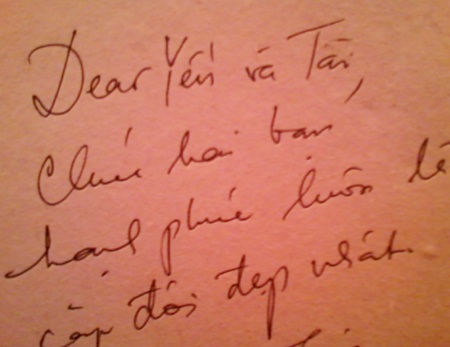 Dear Yến và Tài,
Chúc hai bạn
hạnh phúc luôn là
cặp đôi đẹp nhất.